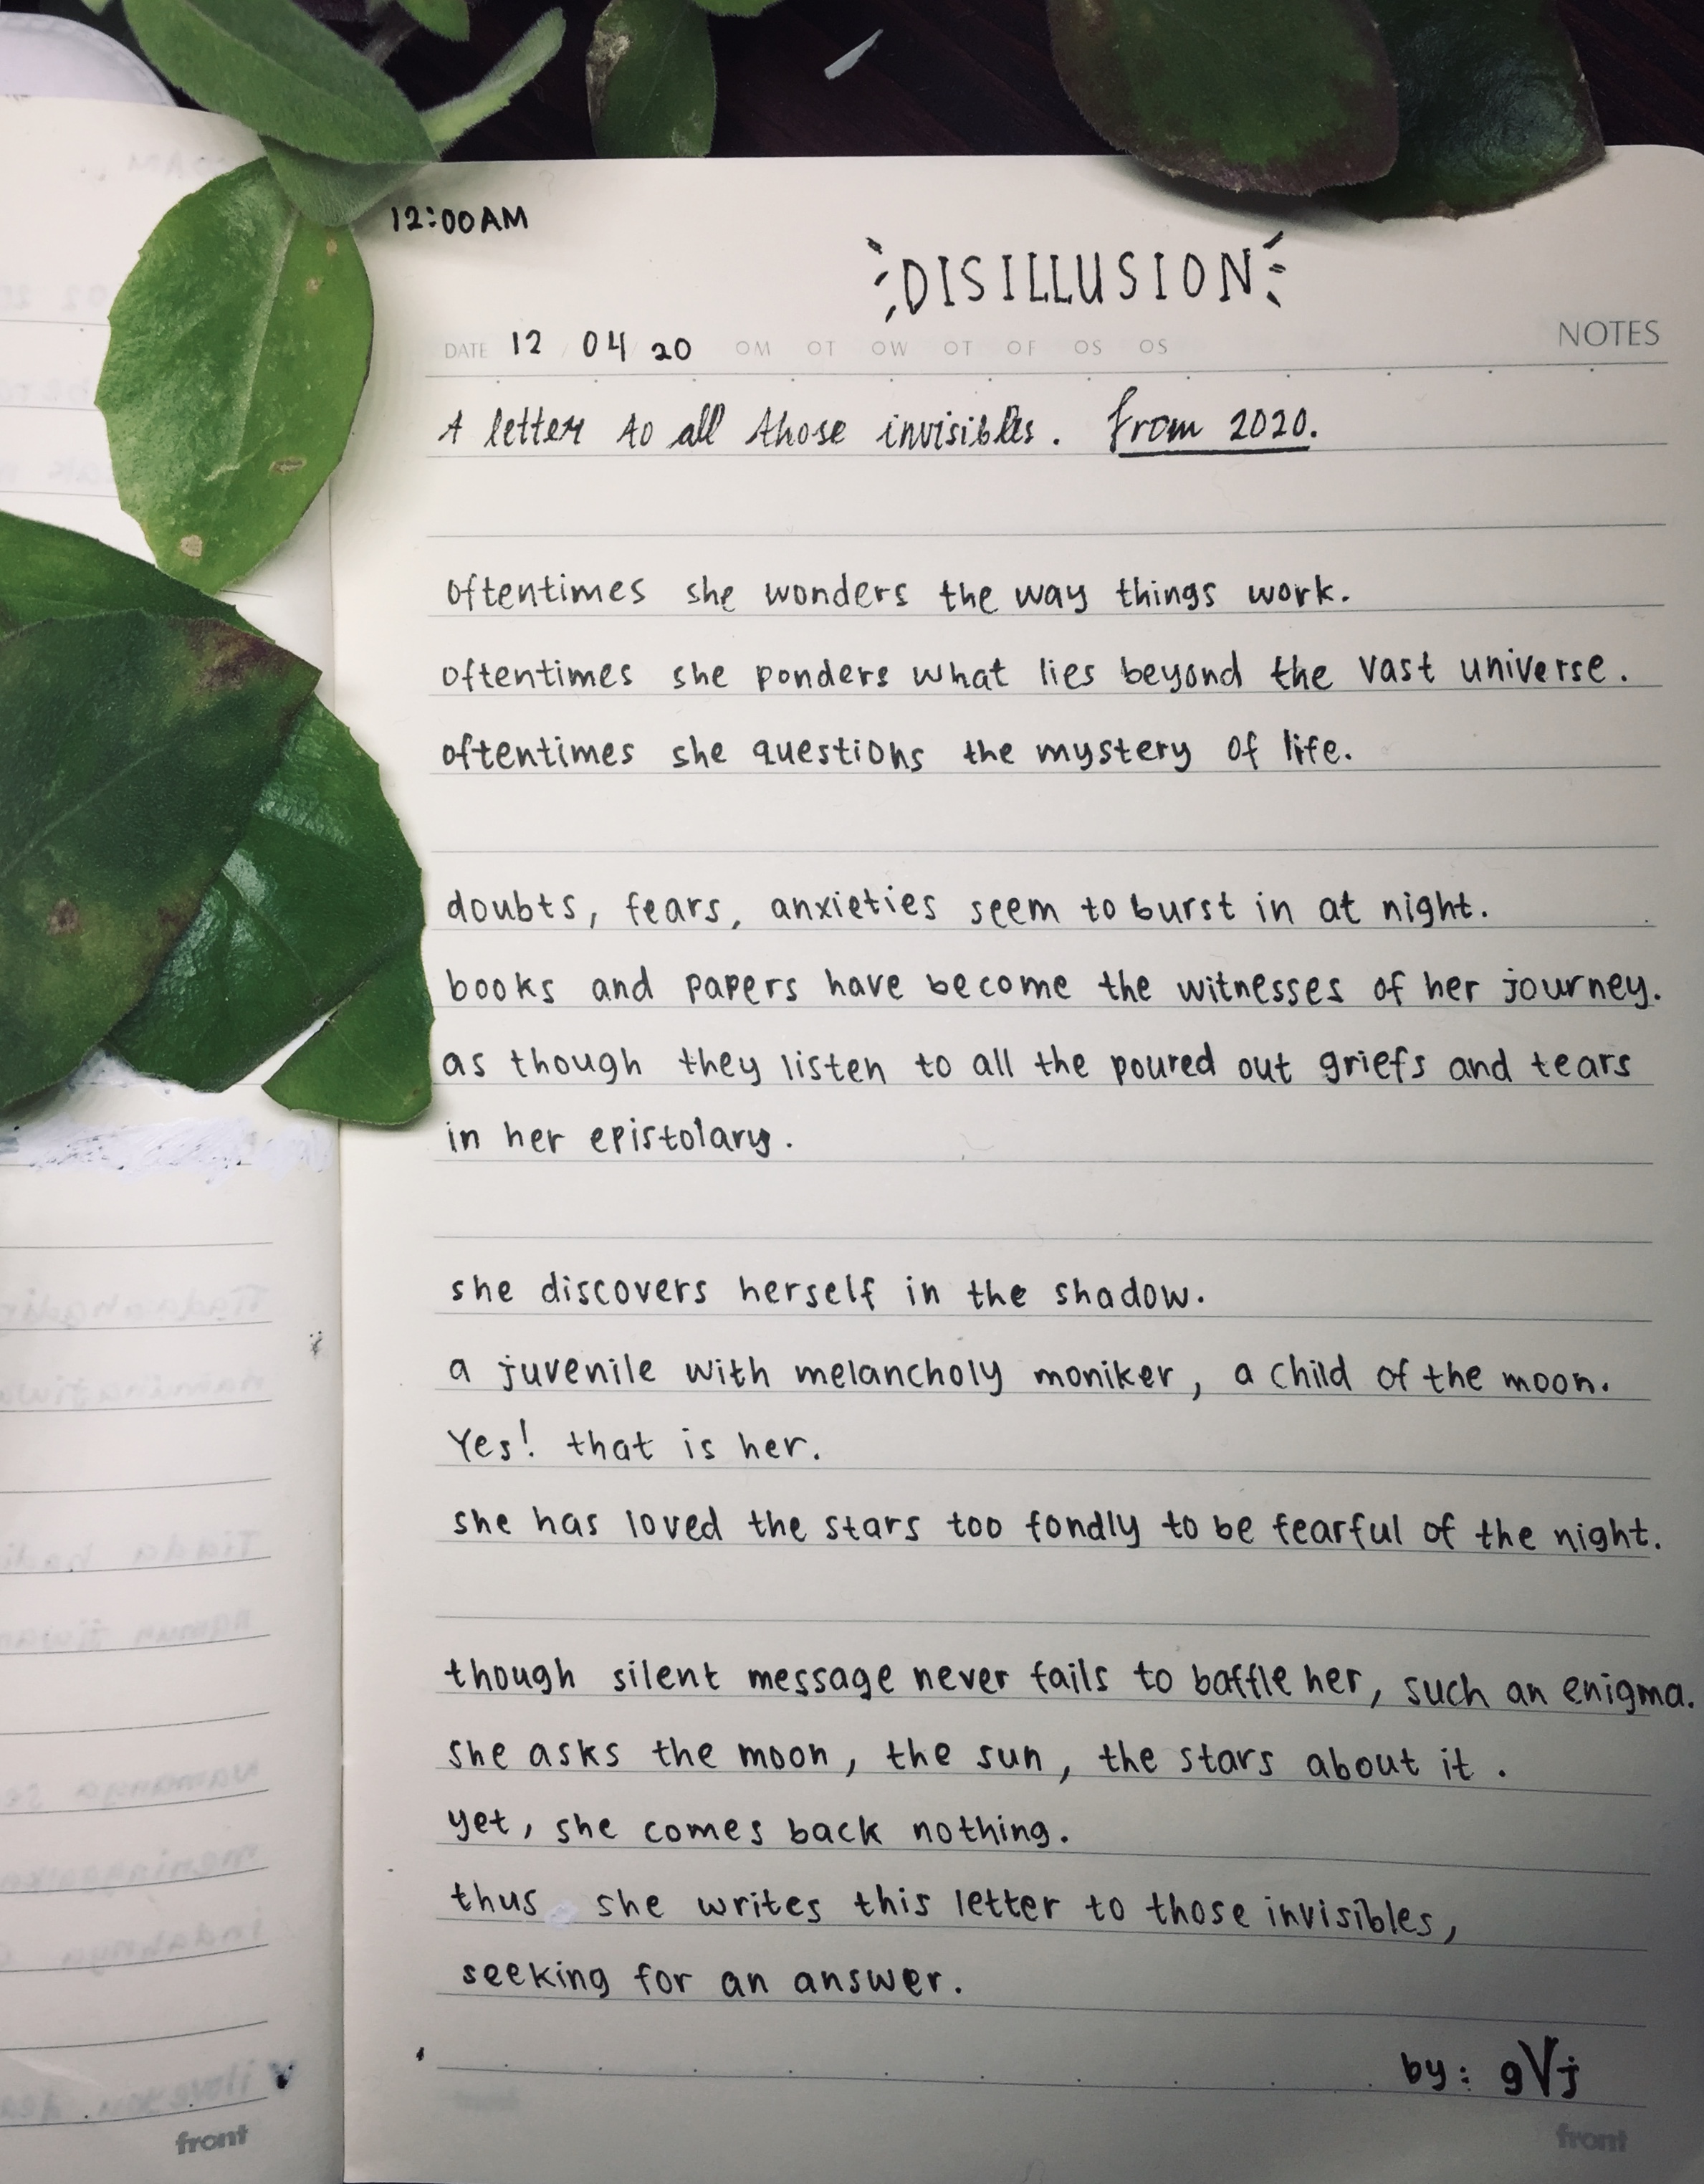 12:00AM
DISILLUSION
DATE 12 / 04 / 20 OM OT OW OT OF OS OS NOTES
A letter to all those invisibles. from 2020.
oftentimes she wonders the way things work.
oftentimes she ponders what lies beyond the vast universe.
oftentimes she questions the mystery of life.
doubts, fears, anxieties seem to burst in at night.
books and papers have become the witnesses of her journey.
as though they listen to all the poured out griefs and tears
in her epistolary.
she discovers herself in the shadow.
a juvenile with melancholy moniker, a child of the moon.
Yes! that is her.
she has loved the stars too fondly to be fearful of the night.
though silent message never fails to baffle her, such an enigma.
she asks the moon, the sun, the stars about it.
yet, she comes back nothing.
thus she writes this letter to those invisibles,
seeking for an answer.
by: gVj
front
front